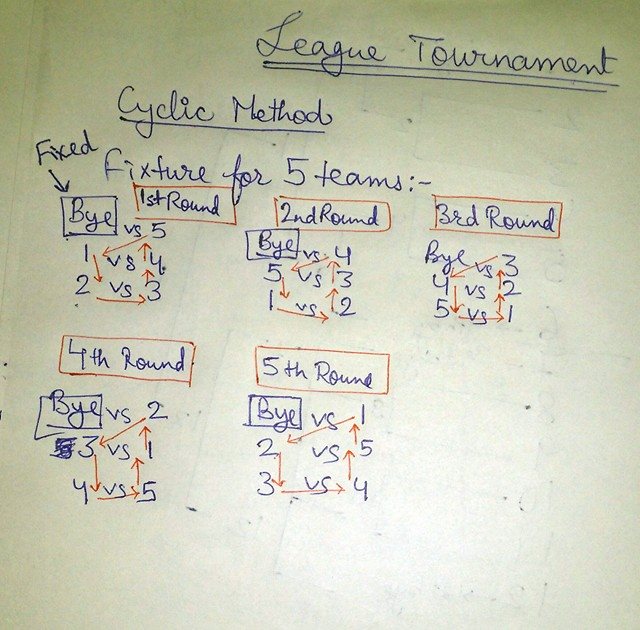 League Tournament
Cyclic Method
Fixed
Fixture for 5 teams:-
1st Round
Bye vs 5
1 vs 4
2 vs 3
2nd Round
Bye vs 4
5 vs 3
1 vs 2
3rd Round
Bye vs 3
4 vs 2
5 vs 1
4th Round
Bye vs 2
3 vs 1
4 vs 5
5th Round
Bye vs 1
2 vs 5
3 vs 4